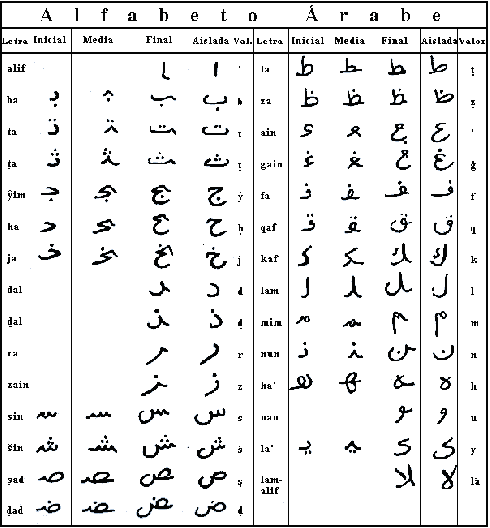 Alfabeto Árabe
Letra Inicial Media Final Aislada Val. Letra Inicial Media Final Aislada Valor
alif ـا ا ʼ ṭa طـ ـطـ ـط ط ṭ
ba بـ ـبـ ـب ب b ẓa ظـ ـظـ ـظ ظ ẓ
ta تـ ـتـ ـت ت t ain عـ ـعـ ـع ع ʻ
ṯa ثـ ـثـ ـث ث ṯ gain غـ ـغـ ـغ غ
ŷim جـ ـجـ ـج ج ŷ fa فـ ـفـ ـف ف f
ḥa حـ ـحـ ـح ح ḥ qaf قـ ـقـ ـق ق q
ja خـ ـخـ ـخ خ j kaf كـ ـكـ ـك ك k
dal ـد د d lam لـ ـلـ ـل ل l
ḏal ـذ ذ ḏ mim مـ ـمـ ـم م m
ra ـر ر r nun نـ ـنـ ـن ن n
zain ـز ز z haʼ هـ ـهـ ـه ه h
sin سـ ـسـ ـس س s ـو و u
šin شـ ـشـ ـش ش š يـ ـيـ ـي ي y
ṣad صـ ـصـ ـص ص ṣ lam-alif ـلا لا la
ḍad ضـ ـضـ ـض ض ḍ